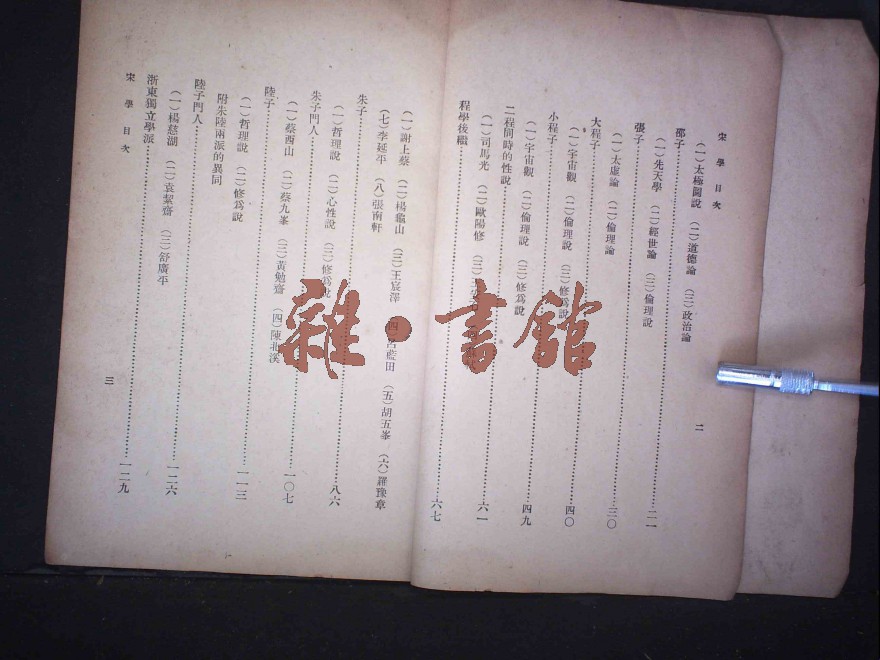 宋學目次
二
（一）太極圖說　（二）道德論　（三）政治論
邵子……二一
（一）先天學　（二）經世論　（三）倫理說
張子……三〇
（一）太虛論　（二）倫理論
大程子……四〇
（一）宇宙觀　（二）倫理說　（三）修爲說
小程子……四九
（一）宇宙觀　（二）倫理說　（三）修爲說
二程同時的性說……六一
（一）司馬光　（二）歐陽修　（三）王
程學後繼……六七
（一）謝上蔡　（二）楊龜山　（三）王震澤　（四）呂藍田　（五）胡五峯　（六）羅豫章
（七）李延平　（八）張南軒
朱子……八六
（一）哲理說　（二）心性說　（三）修爲說
朱子門人……一〇七
（一）蔡西山　（二）蔡九峯　（三）黃勉齋　（四）陳北溪
陸子……一一三
（一）哲理說　（二）修爲說
附朱陸兩派的異同
陸子門人……一二六
（一）楊慈湖　（二）袁絜齋　（三）舒廣平
浙東獨立學派……一二九
宋學目次
三
雜·書館